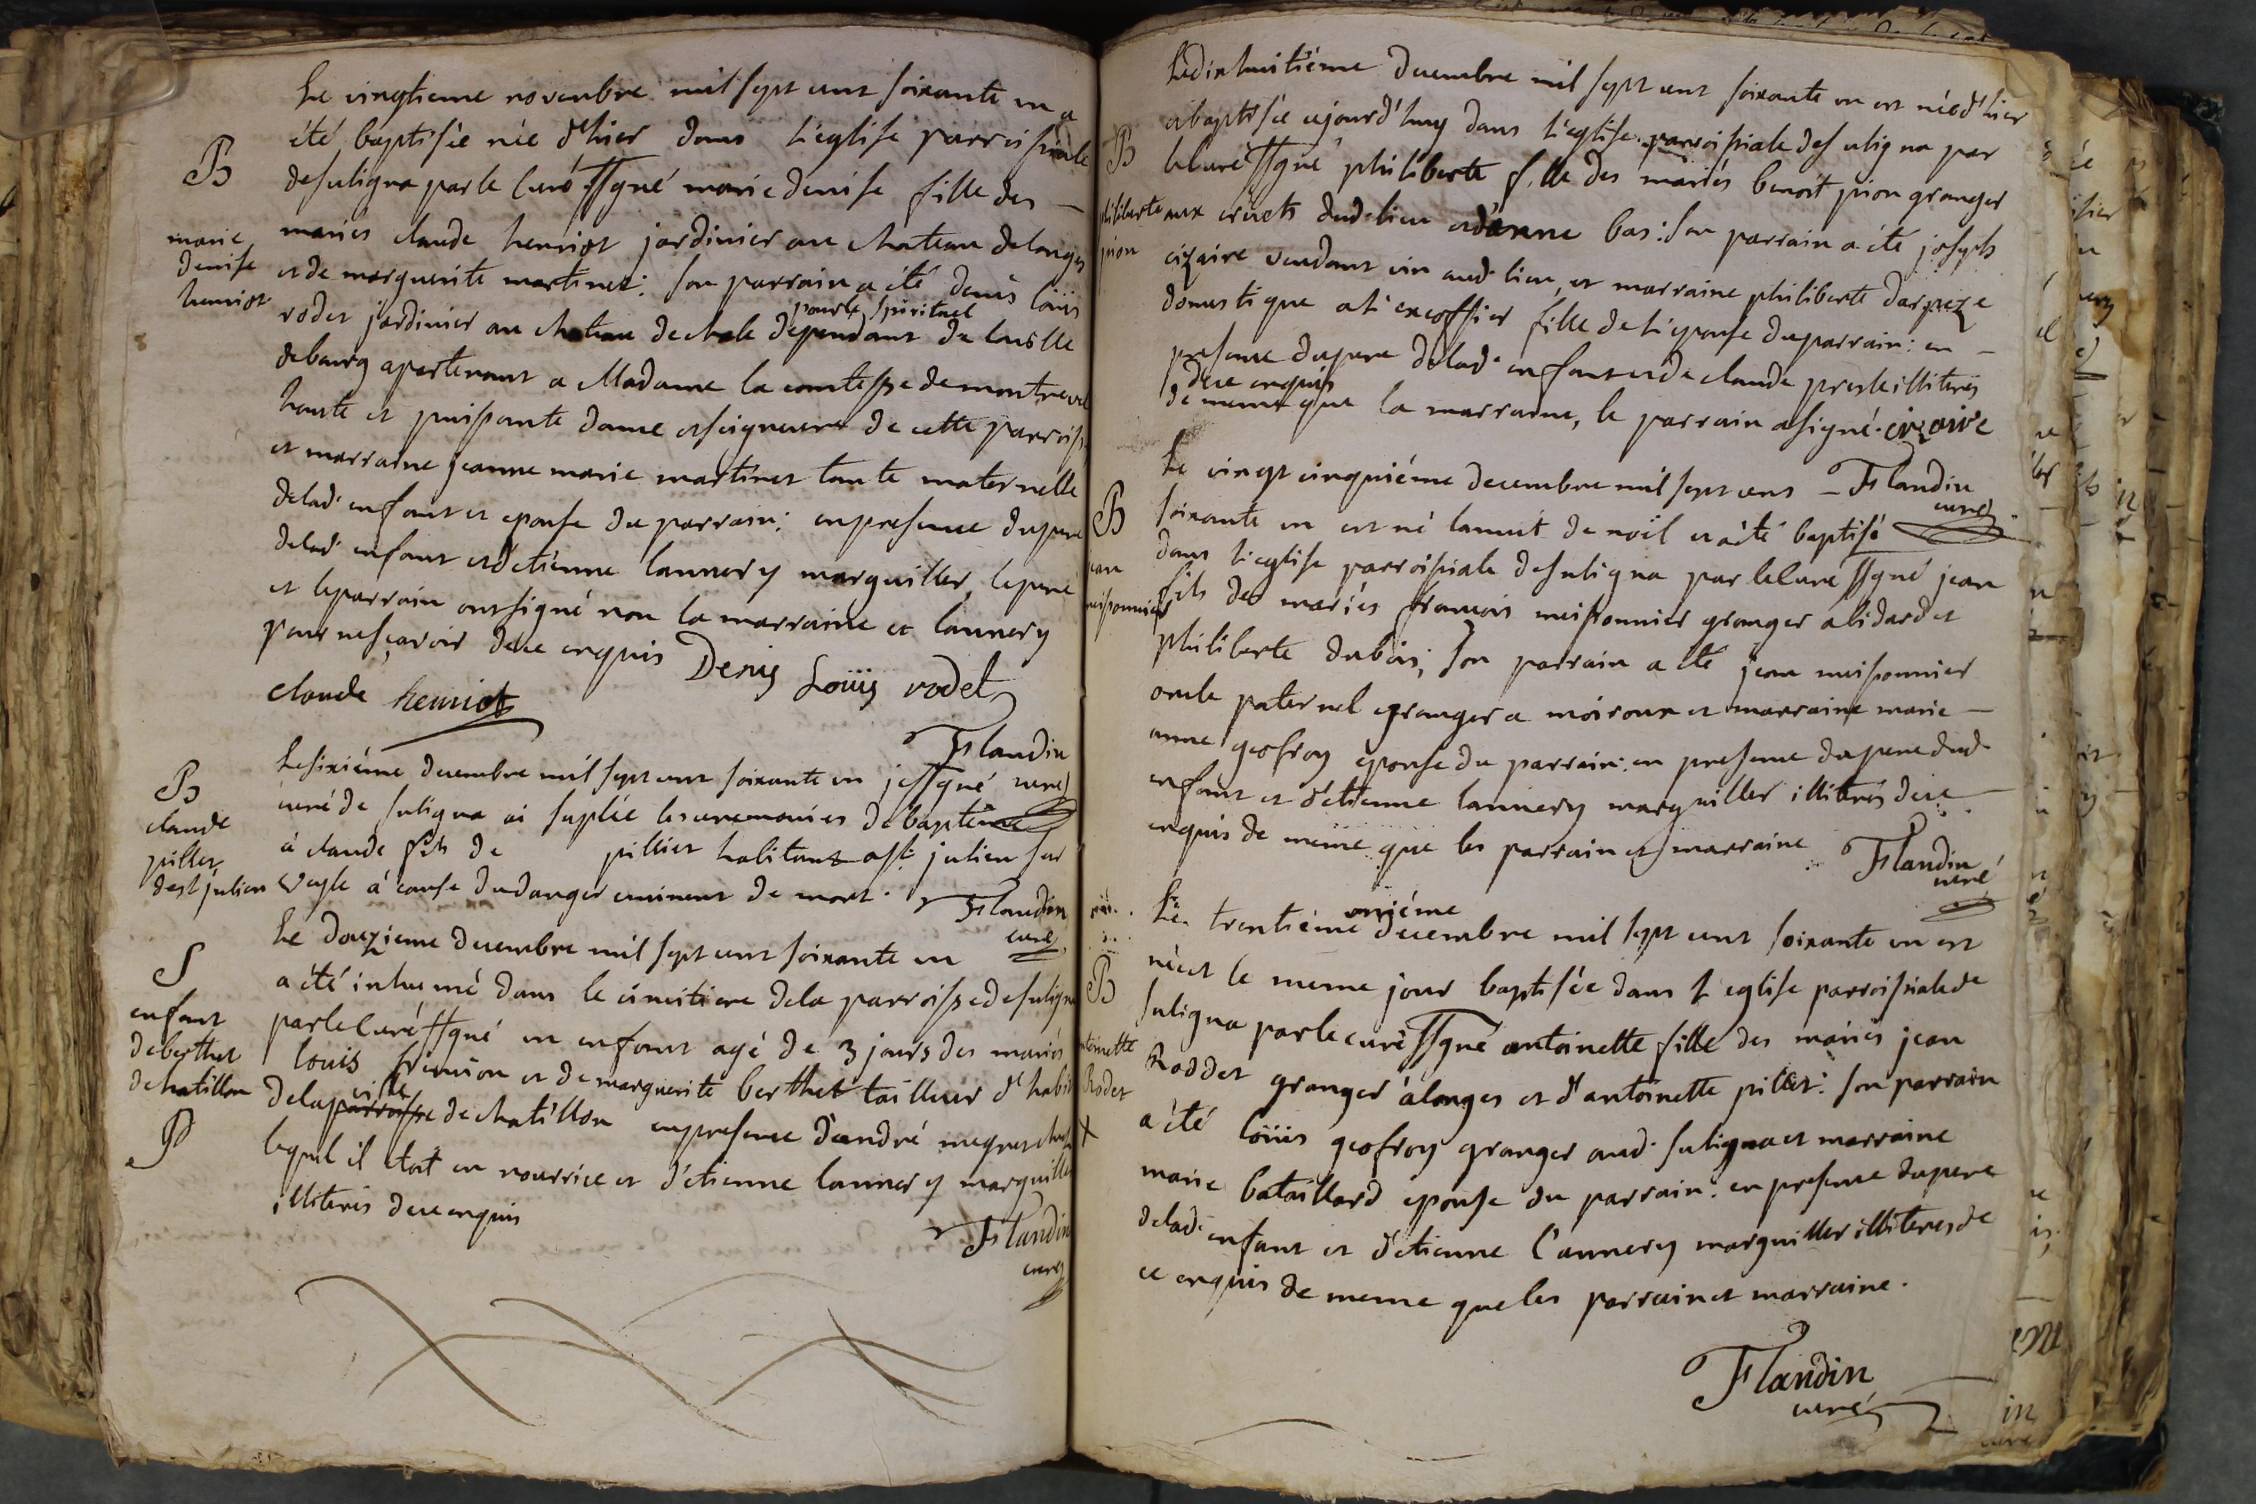 Le vingtieme novembre mil sept cent soixante un a
été baptisée née d'hier dans l'eglise parroissiale
B
de suligna par le Curé ssgné marie denise fille des —
marie
denise
henriot
mariés claude henriot jardinier au chateau de longes
et de marguerite martinet: son parrain a été denis loüis
pour le spirituel
rodet jardinier au chateau de chale dépendant de la ville
de bourg apartenant a Madame la comtesse de montrevel
haute et puissante dame et seigneure de cette parroisse
et marraine jeanne marie martinet tante maternelle
de lad. enfant et epouse du parrain: en presence du pere
de lad. enfant et d'etienne lannery marguiller, le pere
et le parrain ont signé non la marraine et lannery
pour ne sçavoir de ce enquis Denis Loüis rodet
claude henriot
Flandin
curé
B
claude
pillet
de st julien
Le sixiéme decembre mil sept cent soixante un je ssgné
curé de suligna ai suplée les ceremonies de baptême
à claude fils de pillier habitant a st. julien sur
Veyle à cause du danger eminent de mort. Flandin
curé
S
enfant
de berthet
de chatillon
P
Le douzieme decembre mil sept cent soixante un
a été inhumé dans le cimitiere de la parroisse de suligna
par le Curé ssgné un enfant agé de 3 jours des mariés
louis et de marguerite berthet tailleur d'habit
ville
de la parroisse de chatillon en presence d'andré chez
lequel il etoit en nourrice et d'etienne lannery marguiller
illiterés de ce enquis
Flandin
curé
Le dix huitiéme decembre mil sept cent soixante un est née d'hier
et baptisée ajourd'huy dans l'eglise parroissiale de suligna par
B
le Curé ssgné philiberte fille des mariés benoit pion granger
philiberte
pion
aux crüets dud. lieu et d'anne bas: son parrain a été joseph
cizaire vendant vin aud. lieu, et marraine philiberte
domestique a fille de l'epouse du parrain: en —
presence du pere de lad. enfant et de claude illiterés
de ce enquis
de meme que la marraine, le parrain a signé. cizaire
Flandin
curé
B
jean
meissonnier
Le vingt cinquiéme decembre mil sept cent —
soixante un est né la nuit de noël et a été baptisé
dans l'eglise parroissiale de suligna par le Curé ssgné jean
fils des mariés francois meissonnier granger a lidard et
philiberte dubois; son parrain a été jean meissonnier
oncle paternel granger a moiroux et marraine marie —
anne geofroy epouse du parrain: en presence du pere dud.
enfant et d'etienne lannery marguiller illiterés de ce —
enquis de meme que les parrain et marraine
Flandin
curé
onziéme
Le trentiéme decembre mil sept cent soixante un est
B
née et le meme jour baptisée dans l'eglise parroissiale de
antoinette
Rodet
suligna par le curé ssgné antoinette fille des mariés jean
Roddet granger à longes et d'antoinette pillet: son parrain
a été loüis geofroy granger aud. suligna et marraine
marie bataillard epouse du parrain: en presence du pere
de lad. enfant et d'etienne l'annery marguiller illiterés de
ce enquis de meme que les parrain et marraine.
Flandin
curé